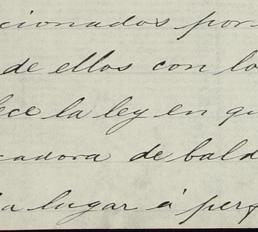 cionados por
de ellos con lo
ece la ley en qu
cadora de bald
a lugar á perj